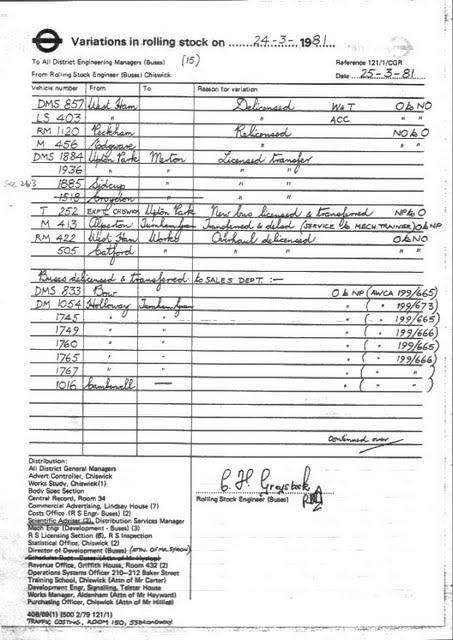 Variations in rolling stock on 24-3-1981
To All District Engineering Managers (Buses) (15) Reference 121/1/CGR
From Rolling Stock Engineer (Buses) Chiswick Date 25-3-81
Vehicle number From To Reason for variation
DMS 857 West Ham Delicensed W&T O to NO
LS 403 " " ACC. " "
RM 1120 Peckham Relicensed NO to O
M 456 Edgware " " "
DMS 1884 Upton Park Merton Licensed transfer
1936 " " " "
See 24/3 1885 Sidcup " " "
1518 Croydon " " "
T 252 EXPTL CHISWICK Upton Park New bus licensed & transferred NP to O
M 413 Alperton Turnham Green Transferred & delsd (SERVICE to MECH TRAINER) O to NP
RM 422 West Ham Works Overhaul delicensed O to NO
505 Catford " " " " "
Buses delicensed & transferred to SALES DEPT. :-
DMS 833 Bow O to NP (AWCA 199/665)
DM 1054 Holloway Turnham Green " ( " 199/673)
1745 " " " ( " 199/665)
1749 " " " ( " 199/666)
1760 " " " ( " 199/665)
1765 " " " ( " 199/666)
1767 " " " ( " " )
1016 Camberwell — " ( " " )
continued over
Distribution:
All District General Managers
Advert Controller, Chiswick
Works Study, Chiswick(1)
Body Spec Section
Central Record, Room 34
Commercial Advertising, Lindsay House (7)
Costs Office (R S Engr- Buses) (2)
Scientific Adviser (2), Distribution Services Manager
Mech Engr (Development - Buses) (3)
R S Licensing Section (6), R S Inspection
Statistical Office, Chiswick (2)
Director of Development (Buses) (ATTN. OF MR.
Schedules Dept - Buses (Attn of Mr
Revenue Office, Griffith House, Room 432 (2)
Operations Systems Officer 210-212 Baker Street
Training School, Chiswick (Attn of Mr Carter)
Development Engr, Signalling, Telstar House
Works Manager, Aldenham (Attn of Mr Hayward)
Purchasing Officer, Chiswick (Attn of Mr Hillier)
C H Graystock
Rolling Stock Engineer (Buses)
408/69(1) (500 2/79 121/1)
TRAFFIC COSTING, ROOM 150, 55 BROADWAY